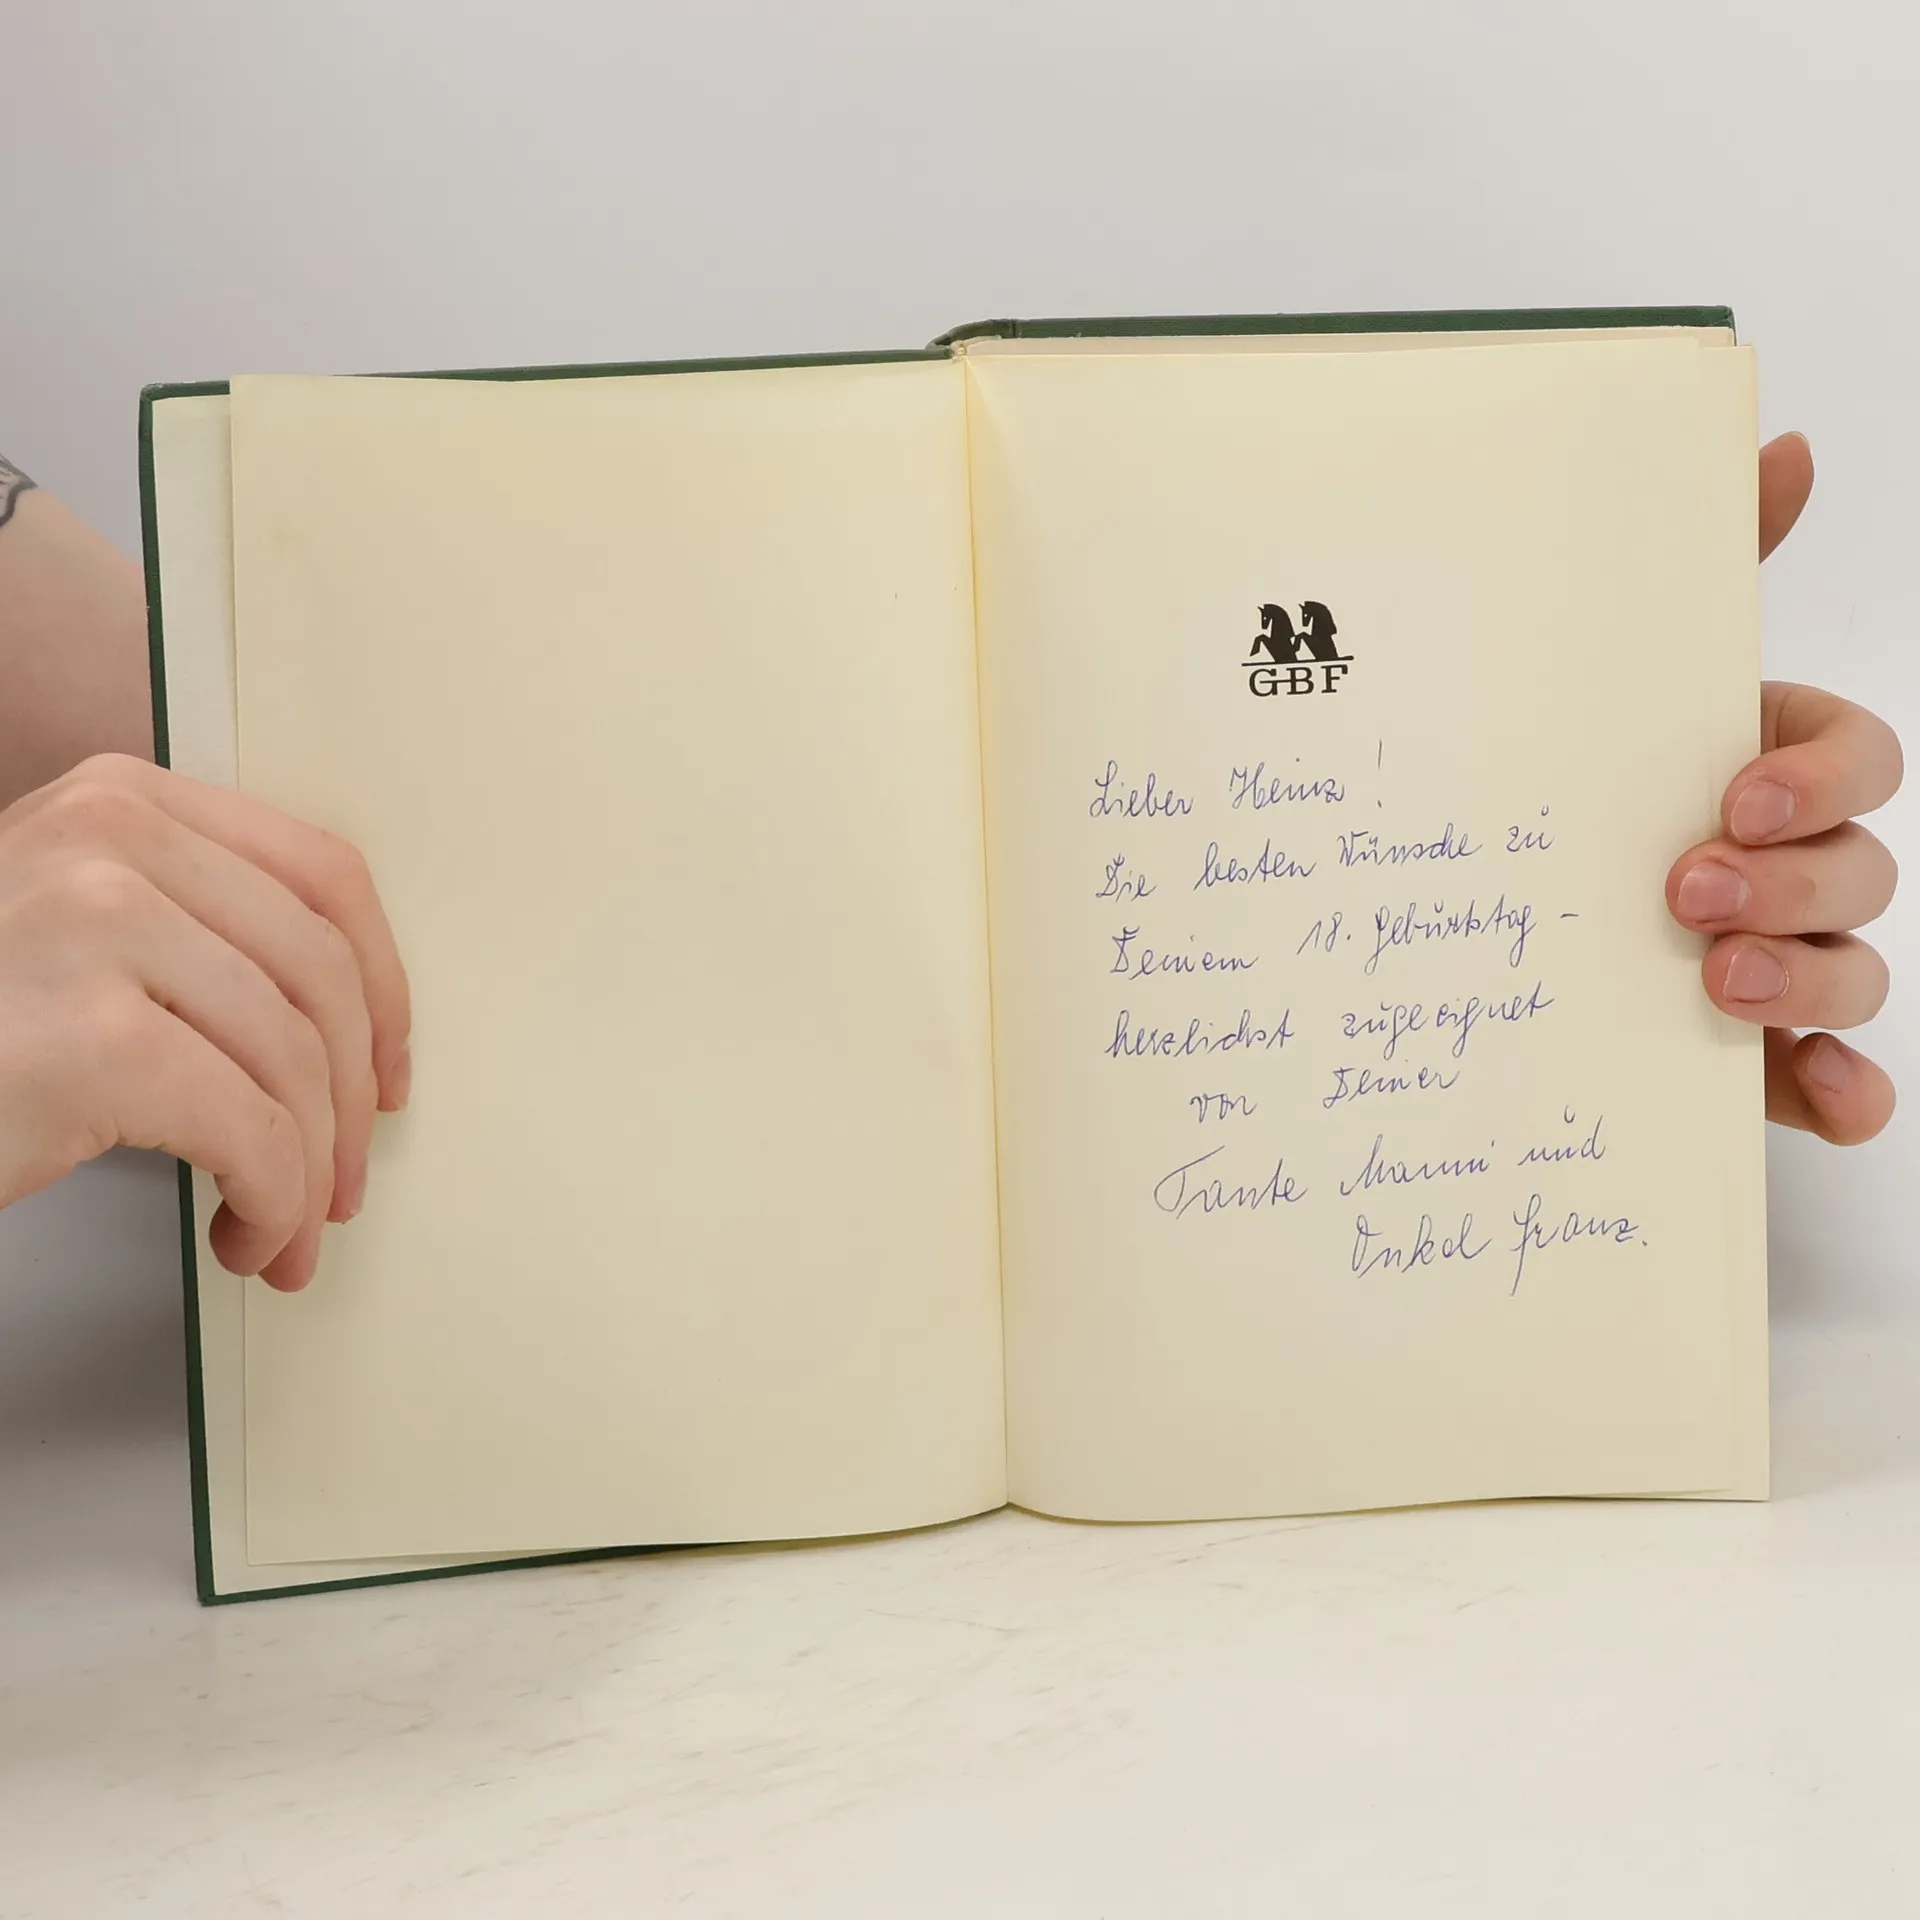 GBF
Lieber Heinz!
Die besten Wünsche zu
Deinem 18. Geburtstag -
herzlichst zugeeignet
von Deiner
Tante Manni und
Onkel Franz.